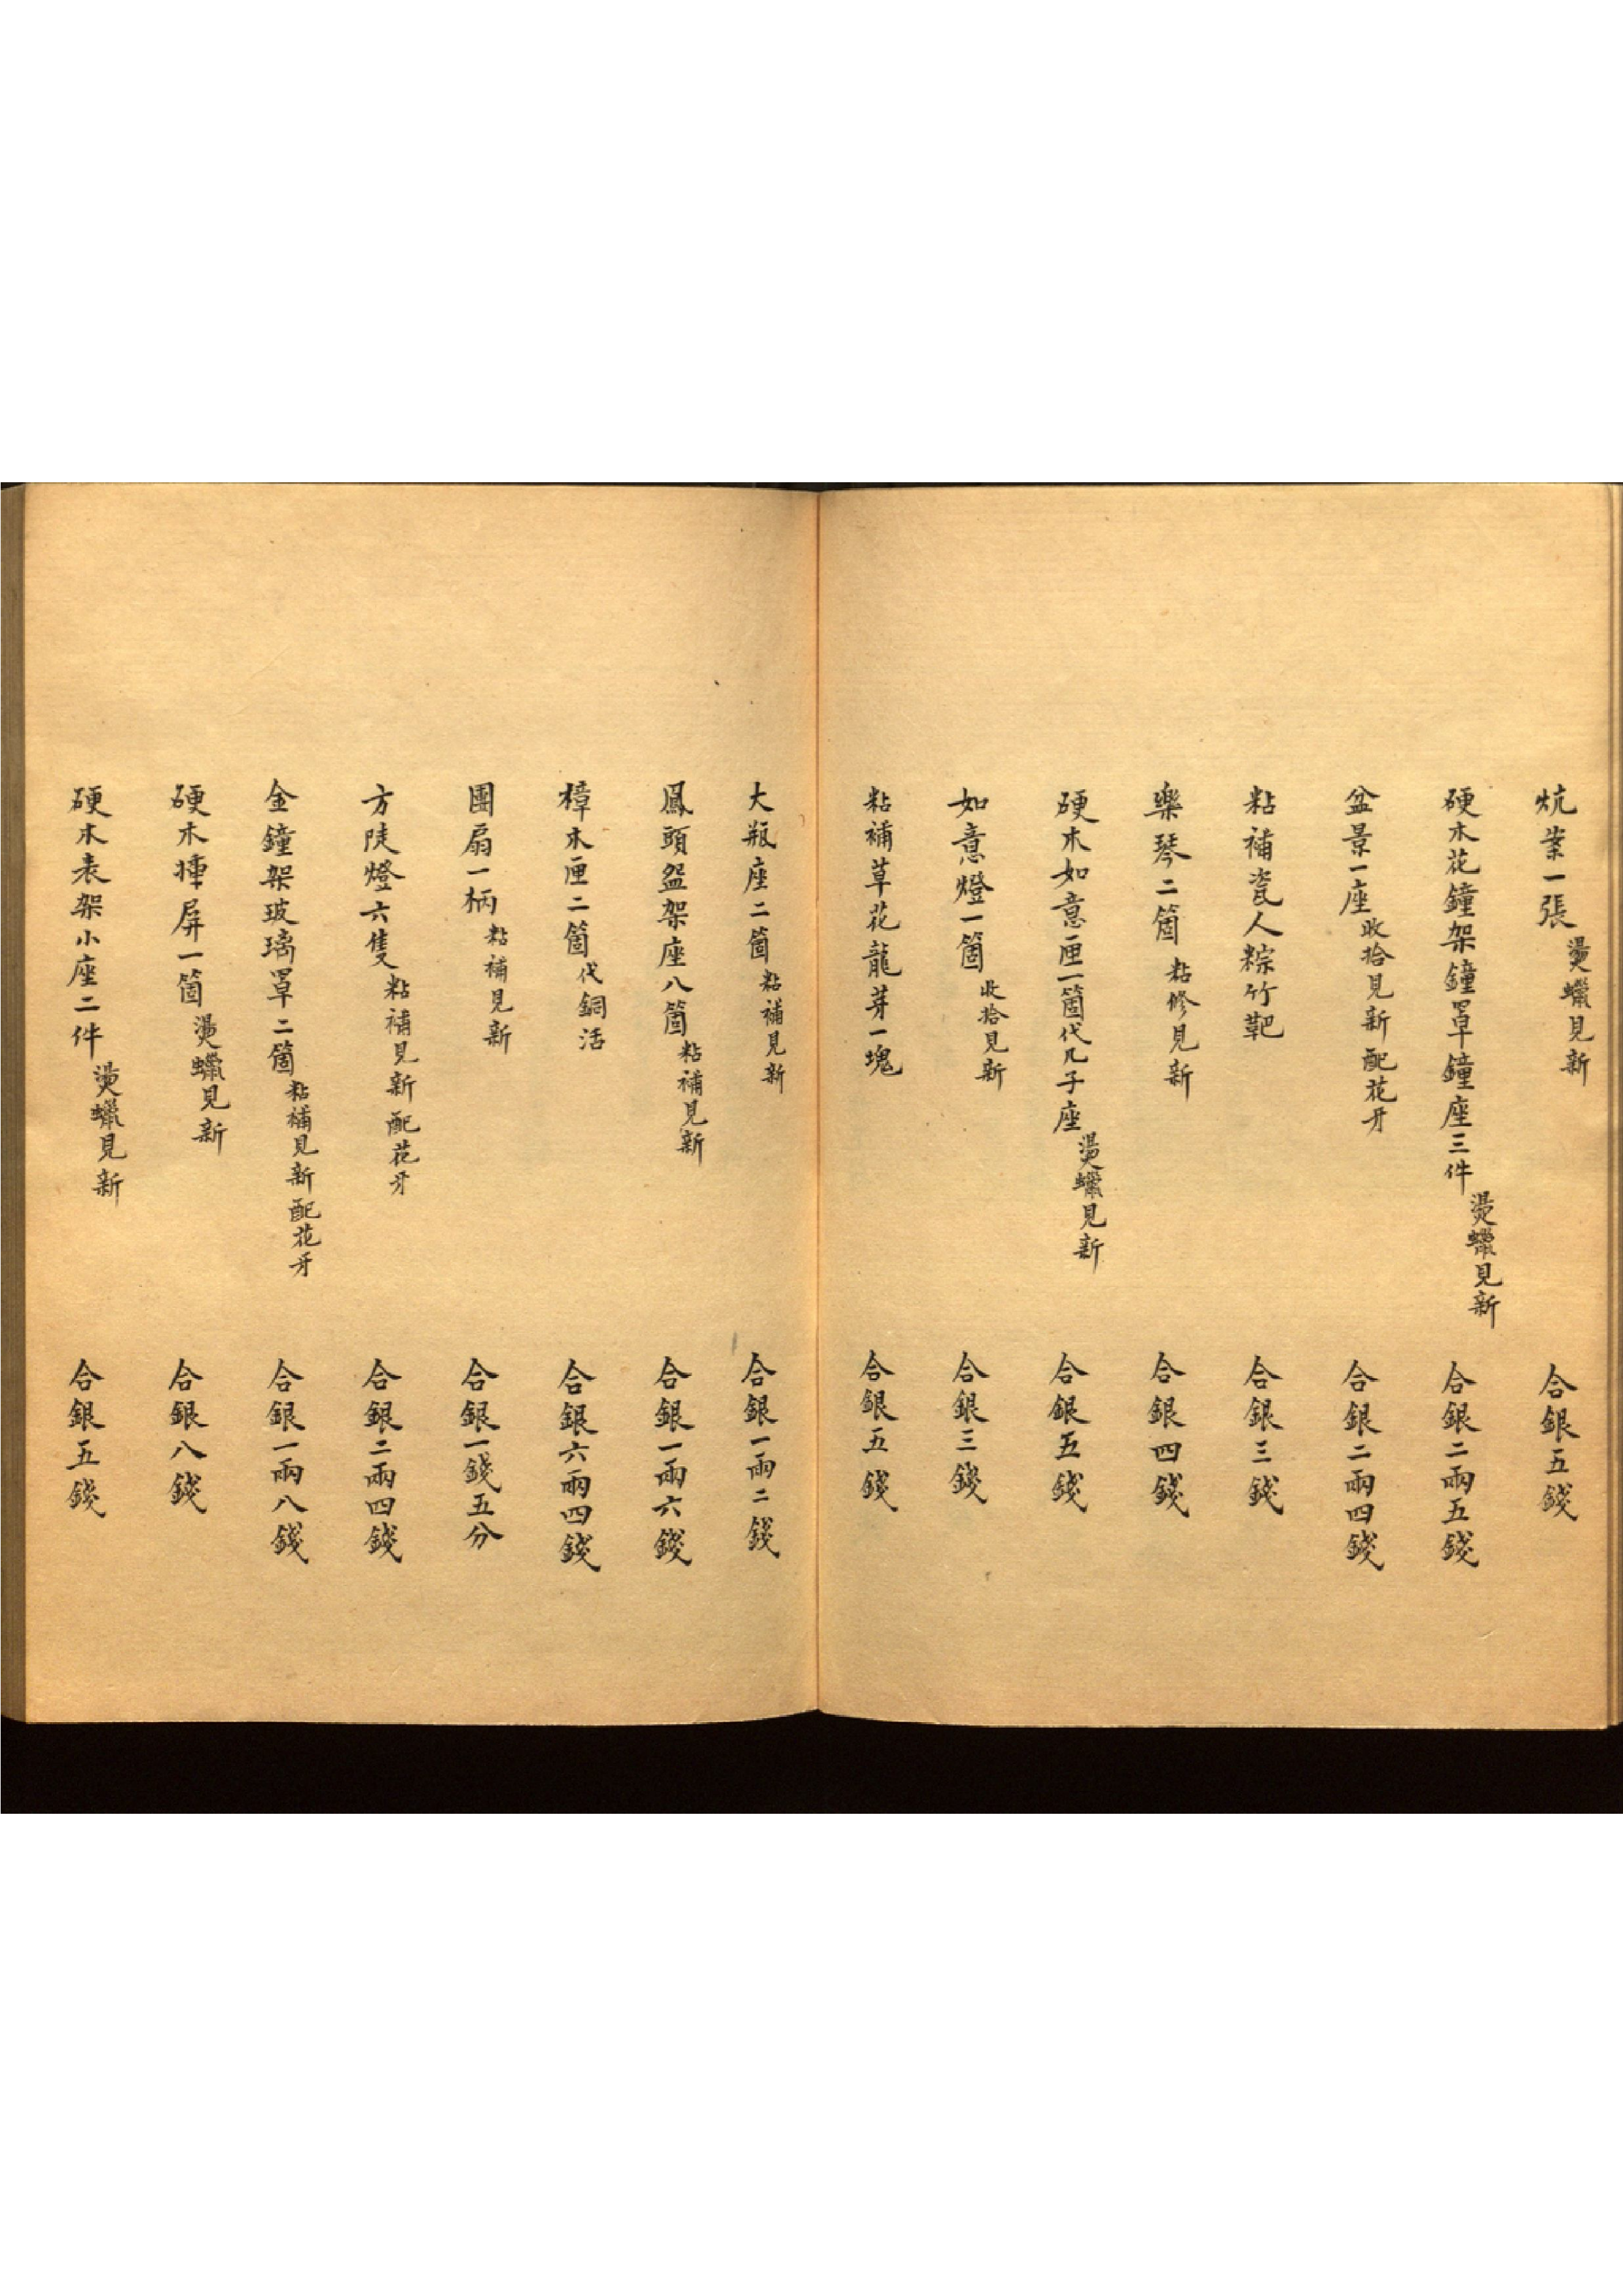 炕案一張燙蠟見新 合銀五錢
硬木花鐘架鐘罩鐘座三件燙蠟見新 合銀二兩五錢
盆景一座收拾見新配花牙 合銀二兩四錢
粘補瓷人粽竹靶 合銀三錢
樂琴二箇粘修見新 合銀四錢
硬木如意匣一箇代几子座燙蠟見新 合銀五錢
如意燈一箇收拾見新 合銀三錢
粘補草花龍芽一塊 合銀五錢
大瓶座二箇粘補見新 合銀一兩二錢
鳳頭盌架座八箇粘補見新 合銀一兩六錢
樟木匣二箇代銅活 合銀六兩四錢
團扇一柄粘補見新 合銀一錢五分
方陡燈六隻粘補見新配花牙 合銀二兩四錢
金鐘架玻璃罩二箇粘補見新配花牙 合銀一兩八錢
硬木揷屏一箇燙蠟見新 合銀八錢
硬木表架小座二件燙蠟見新 合銀五錢